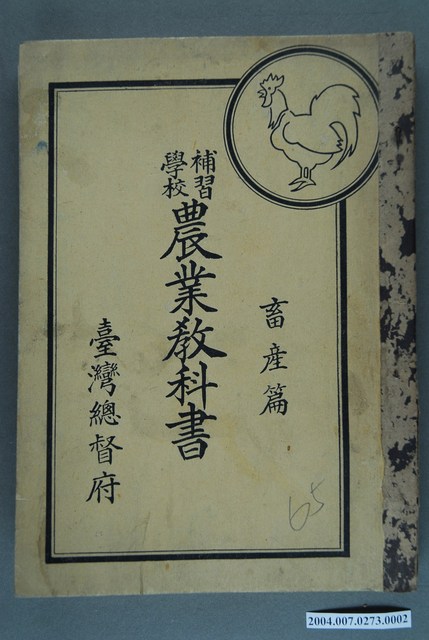 補習
學校
農業教科書
畜產篇
臺灣總督府
65
2004.007.0273.0002